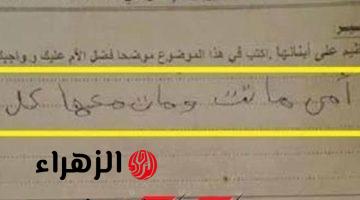 على أبنائها .اكتب في هذا الموضوع موضحا فضل الأم عليك و واجبك
أمي ماتت ومات معها كل
الزهراء